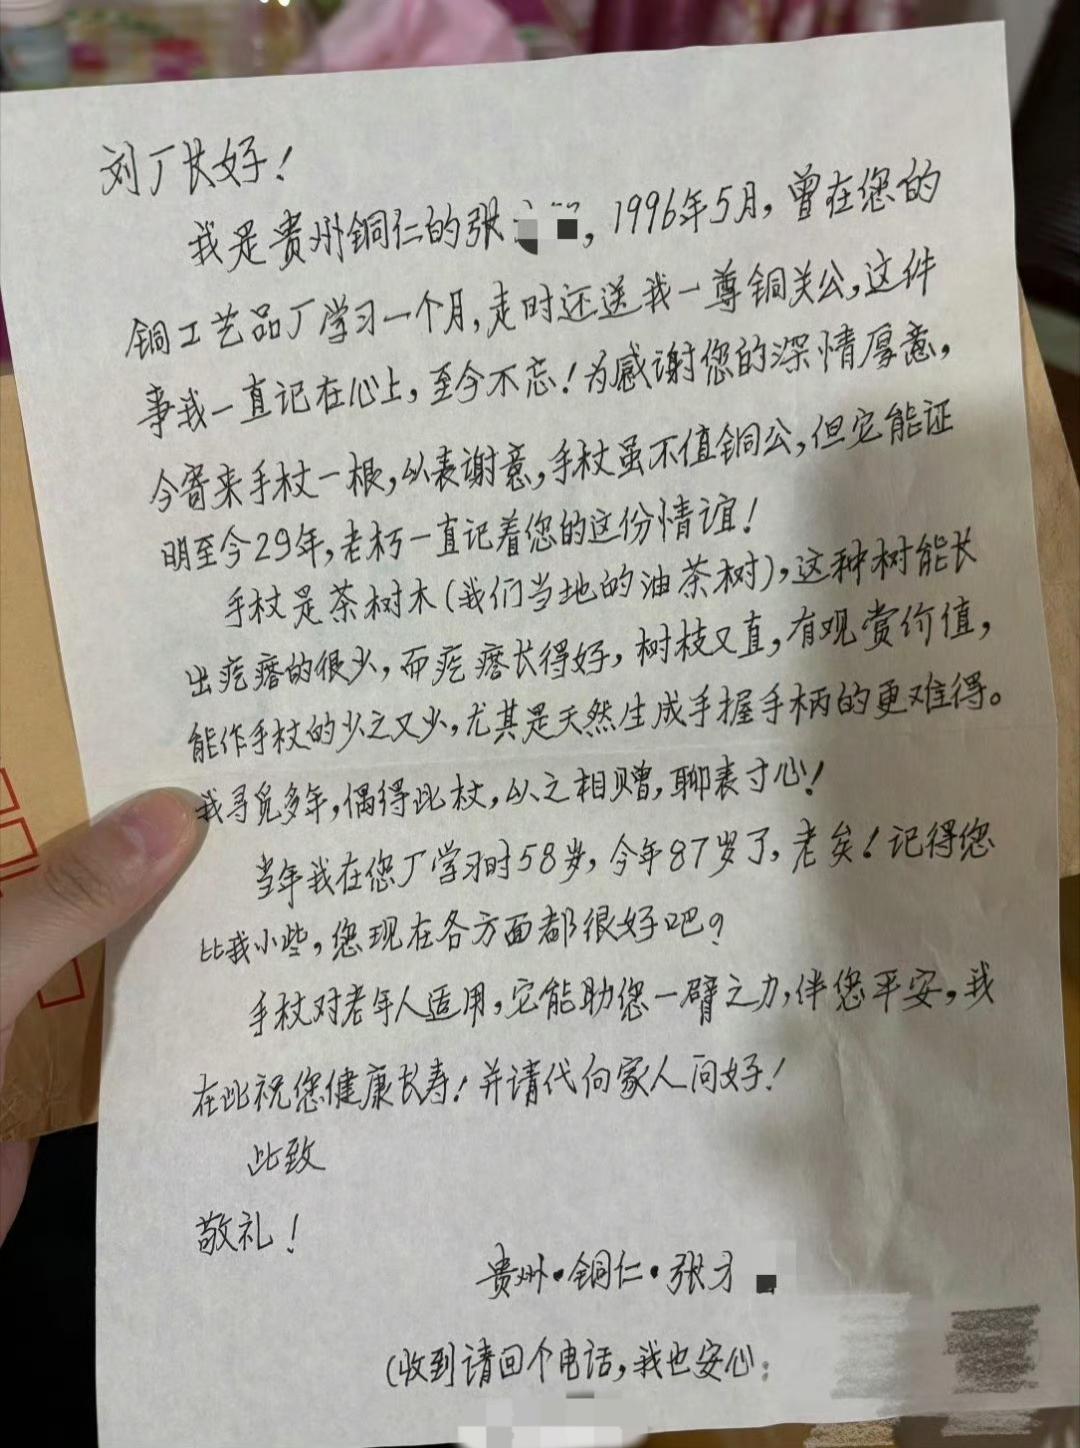 刘厂长好！
我是贵州铜仁的张，1996年5月，曾在您的
铜工艺品厂学习一个月，走时还送我一尊铜关公，这件
事我一直记在心上，至今不忘！为感谢您的深情厚意，
今寄来手杖一根，以表谢意，手杖虽不值铜公，但它能证
明至今29年，老朽一直记着您的这份情谊！
手杖是茶树木（我们当地的油茶树），这种树能长
出疙瘩的很少，而疙瘩长得好，树枝又直，有观赏价值，
能作手杖的少之又少，尤其是天然生成手握手柄的更难得。
我寻觅多年，偶得此杖，以之相赠，聊表寸心！
当年我在您厂学习时58岁，今年87岁了，老矣！记得您
比我小些，您现在各方面都很好吧？
手杖对老年人适用，它能助您一臂之力，伴您平安，我
在此祝您健康长寿！并请代向家人问好！
此致
敬礼！
贵州·铜仁·张
（收到请回个电话，我也安心